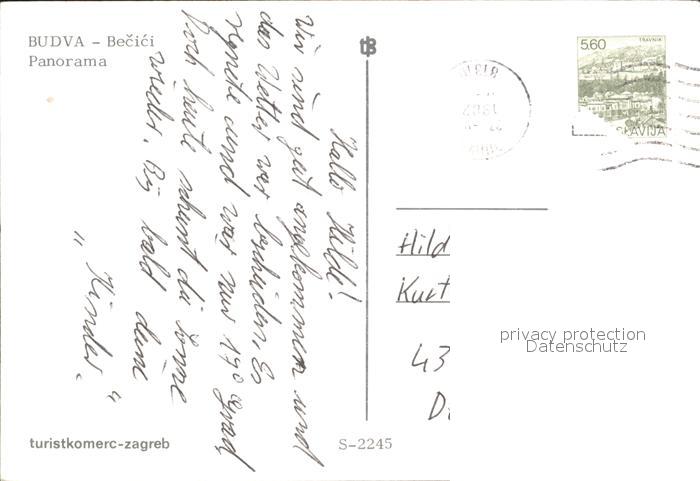 BUDVA – Bečići
Panorama
Hallo Hilde!
Wir sind gut angekommen und
das Wetter war bescheiden. Es
regnete und war nur 19° Grad
Doch heute scheint die Sonne
wieder. Bis bald deine
"Kinder."
turistkomerc-zagreb
S-2245
5,60
TRAVNIK
SLAVIJA
Hild
Kurt
43
D
privacy protection
Datenschutz